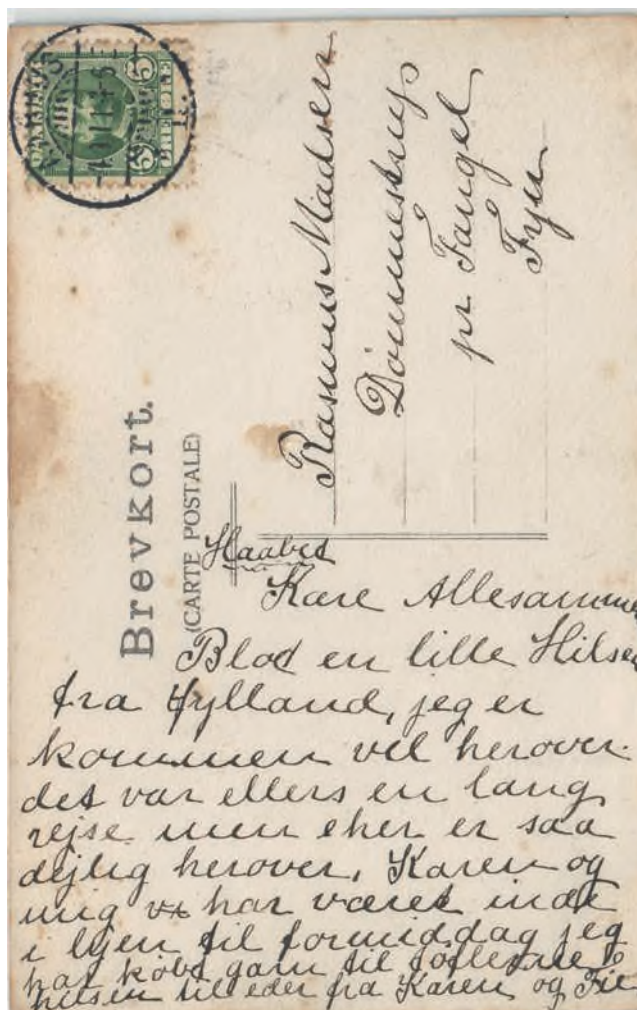 DANMARK
5 5
BREVE ØRE
AARHUS
Brevkort.
(CARTE POSTALE)
Rasmus Madsen
Dømmestrup
pr Fangel
Fyn
Haabet
Kære Allesammen
Blot en lille Hilsen
fra Jylland, jeg er
kommen vel herover.
det var ellers en lang
rejse men eher er saa
dejlig herover, Karen og
mig har været inde
i byen til formiddag jeg
har købt garn til
hilsen til eder fra Karen og